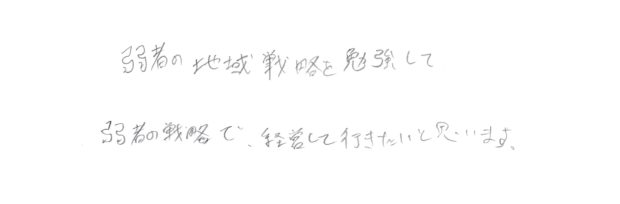 弱者の地域戦略を勉強して
弱者の戦略で、経営して行きたいと思います。